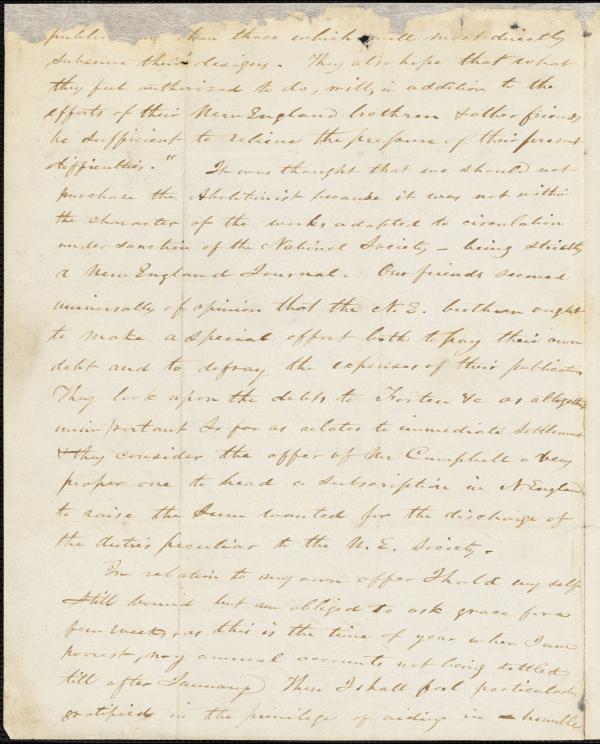 than those which will most directly
subserve their designs. They also hope that what
they feel authorized to do, will, in addition to the
efforts of their New England brethren & other friends
be sufficient to relieve the pressure of their present
difficulties."  It was thought that we should not
purchase the Abolitionist because it was not within
the character of the works adapted to circulation
under sanction of the National Society – being strictly
a New England Journal. Our friends seemed
universally of opinion that the N. E. brethren ought
to make a special effort both to pay their own
debt and to defray the expenses of their publication
They look upon the debts to Forten &c as altogether
unimportant so far as relates to immediate settlement
& they consider the offer of Mr Campbell a very
proper one to head a subscription in N England
to raise the sum wanted for the discharge of
the duties peculiar to the N. E. Society.
In relation to my own offer I hold myself
still bound but am obliged to ask grace for a
few weeks, as this is the time of year when I am
poorest, my annual accounts not being settled
till after January Then I shall feel particularly
gratified in the privilege of aiding in a humble